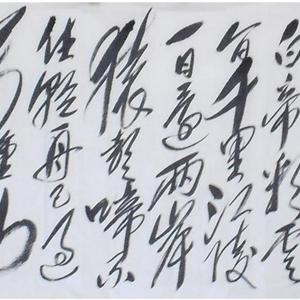 白帝彩雲
間千里江陵
一日還兩岸
猿聲啼不
住輕舟已過
萬重山